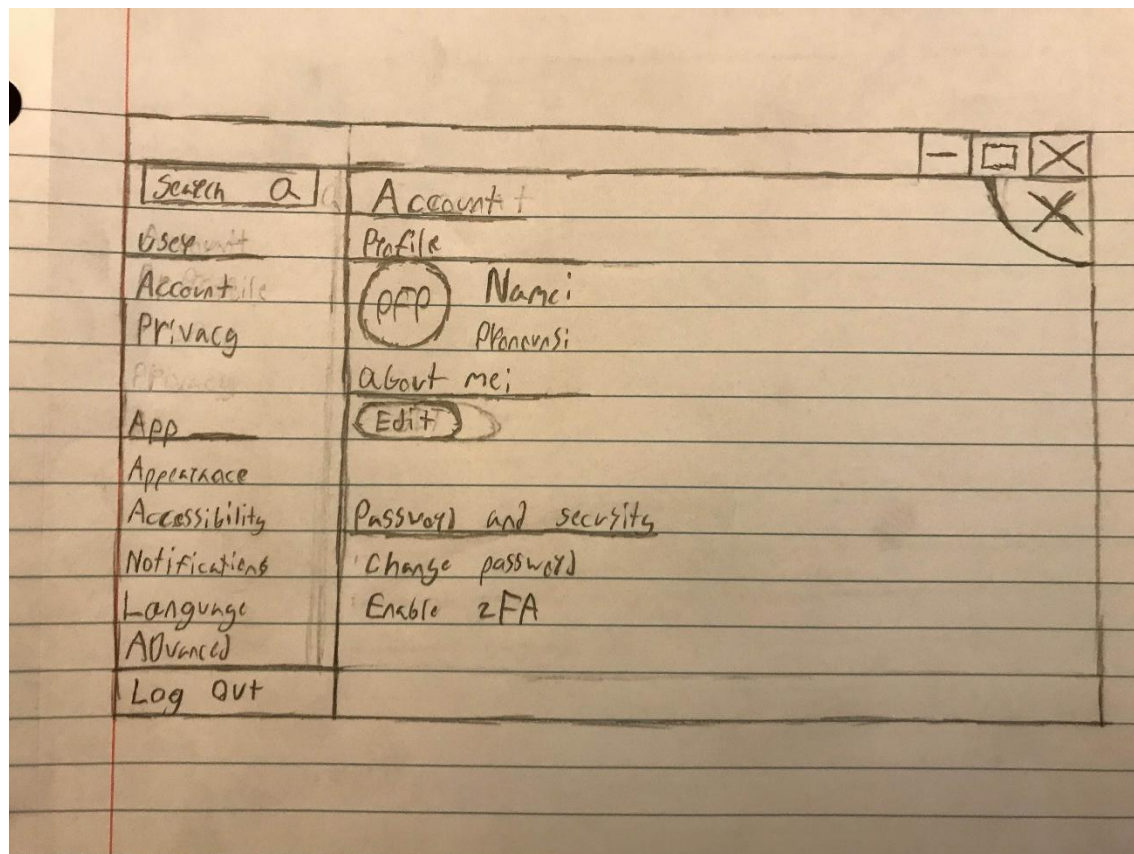 Search
User
Account
Privacy
Privacy
App
Appearance
Accessibility
Notifications
Language
ADvanced
Log Out
Account
Profile
PFP
Name:
Pronouns:
about me:
Edit
Password and security
Change password
Enable 2FA